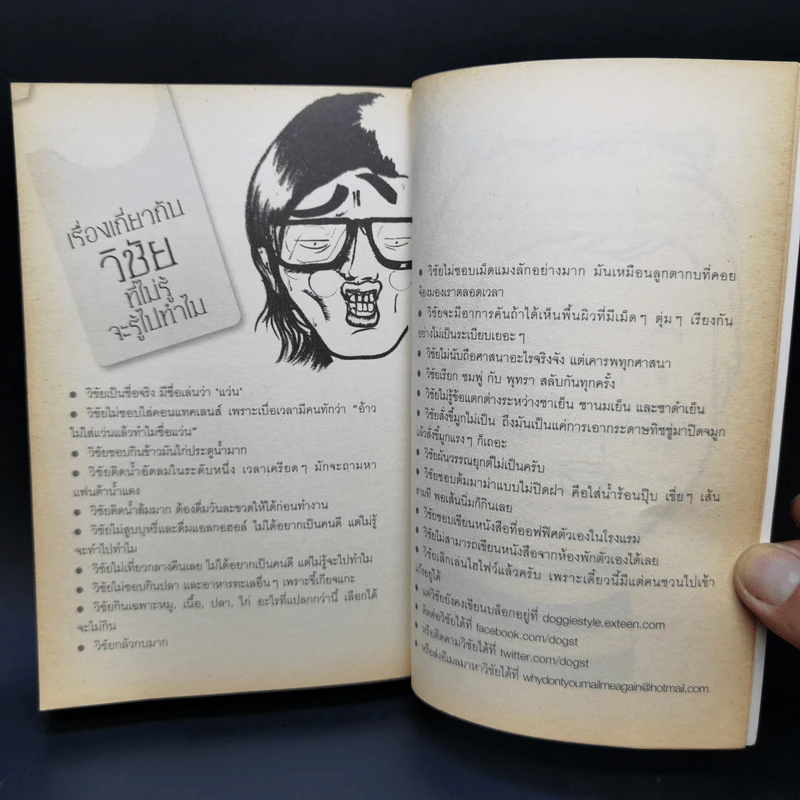 เรื่องเกี่ยวกับ
วิชัย
ที่ไม่รู้
จะรู้ไปทำไม
● วิชัยเป็นชื่อจริง มีชื่อเล่นว่า 'แว่น'
● วิชัยไม่ชอบใส่คอนแทคเลนส์ เพราะเบื่อเวลามีคนทักว่า "อ้าว
ไม่ใส่แว่นแล้วทำไมชื่อแว่น"
● วิชัยชอบกินข้าวมันไก่ประตูน้ำมาก
● วิชัยติดน้ำอัดลมในระดับหนึ่ง เวลาเครียดๆ มักจะถามหา
แฟนต้าน้ำแดง
● วิชัยติดน้ำส้มมาก ต้องดื่มวันละขวดให้ได้ก่อนทำงาน
● วิชัยไม่สูบบุหรี่และดื่มแอลกอฮอล์ ไม่ได้อยากเป็นคนดี แต่ไม่รู้
จะทำไปทำไม
● วิชัยไม่เที่ยวกลางคืนเลย ไม่ได้อยากเป็นคนดี แต่ไม่รู้จะไปทำไม
● วิชัยไม่ชอบกินปลา และอาหารทะเลอื่นๆ เพราะขี้เกียจแกะ
● วิชัยกินเฉพาะหมู, เนื้อ, ปลา, ไก่ อะไรที่แปลกกว่านี้ เลือกได้
จะไม่กิน
● วิชัยกลัวกบมาก
● วิชัยไม่ชอบเม็ดแมงลักอย่างมาก มันเหมือนลูกตากบที่คอย
จ้องมองเราตลอดเวลา
● วิชัยจะมีอาการคันถ้าได้เห็นพื้นผิวที่มีเม็ดๆ ตุ่มๆ เรียงกัน
อย่างไม่เป็นระเบียบเยอะๆ
● วิชัยไม่นับถือศาสนาอะไรจริงจัง แต่เคารพทุกศาสนา
● วิชัยเรียก ชมพู่ กับ พุทรา สลับกันทุกครั้ง
● วิชัยไม่รู้ข้อแตกต่างระหว่างชาเย็น ชานมเย็น และชาดำเย็น
● วิชัยสั่งขี้มูกไม่เป็น ถึงมันเป็นแค่การเอากระดาษทิชชู่มาปิดจมูก
แล้วสั่งขี้มูกแรงๆ ก็เถอะ
● วิชัยผันวรรณยุกต์ไม่เป็นครับ
● วิชัยชอบต้มมาม่าแบบไม่ปิดฝา คือใส่น้ำร้อนปุ๊บ เขี่ยๆ เส้น
สามที พอเส้นนิ่มก็กินเลย
● วิชัยชอบเขียนหนังสือที่ออฟฟิศตัวเองในโรงแรม
● วิชัยไม่สามารถเขียนหนังสือจากห้องพักตัวเองได้เลย
● วิชัยเลิกเล่นไฮไฟว์แล้วครับ เพราะเดี๋ยวนี้มีแต่คนชวนไปเข้า
แก๊งอยู่ได้
● แต่วิชัยยังคงเขียนบล็อกอยู่ที่ doggiestyle.exteen.com
● ติดต่อวิชัยได้ที่ facebook.com/dogst
● หรือติดตามวิชัยได้ที่ twitter.com/dogst
● หรือส่งอีเมลมาหาวิชัยได้ที่ whydontyoumailmeagain@hotmail.com